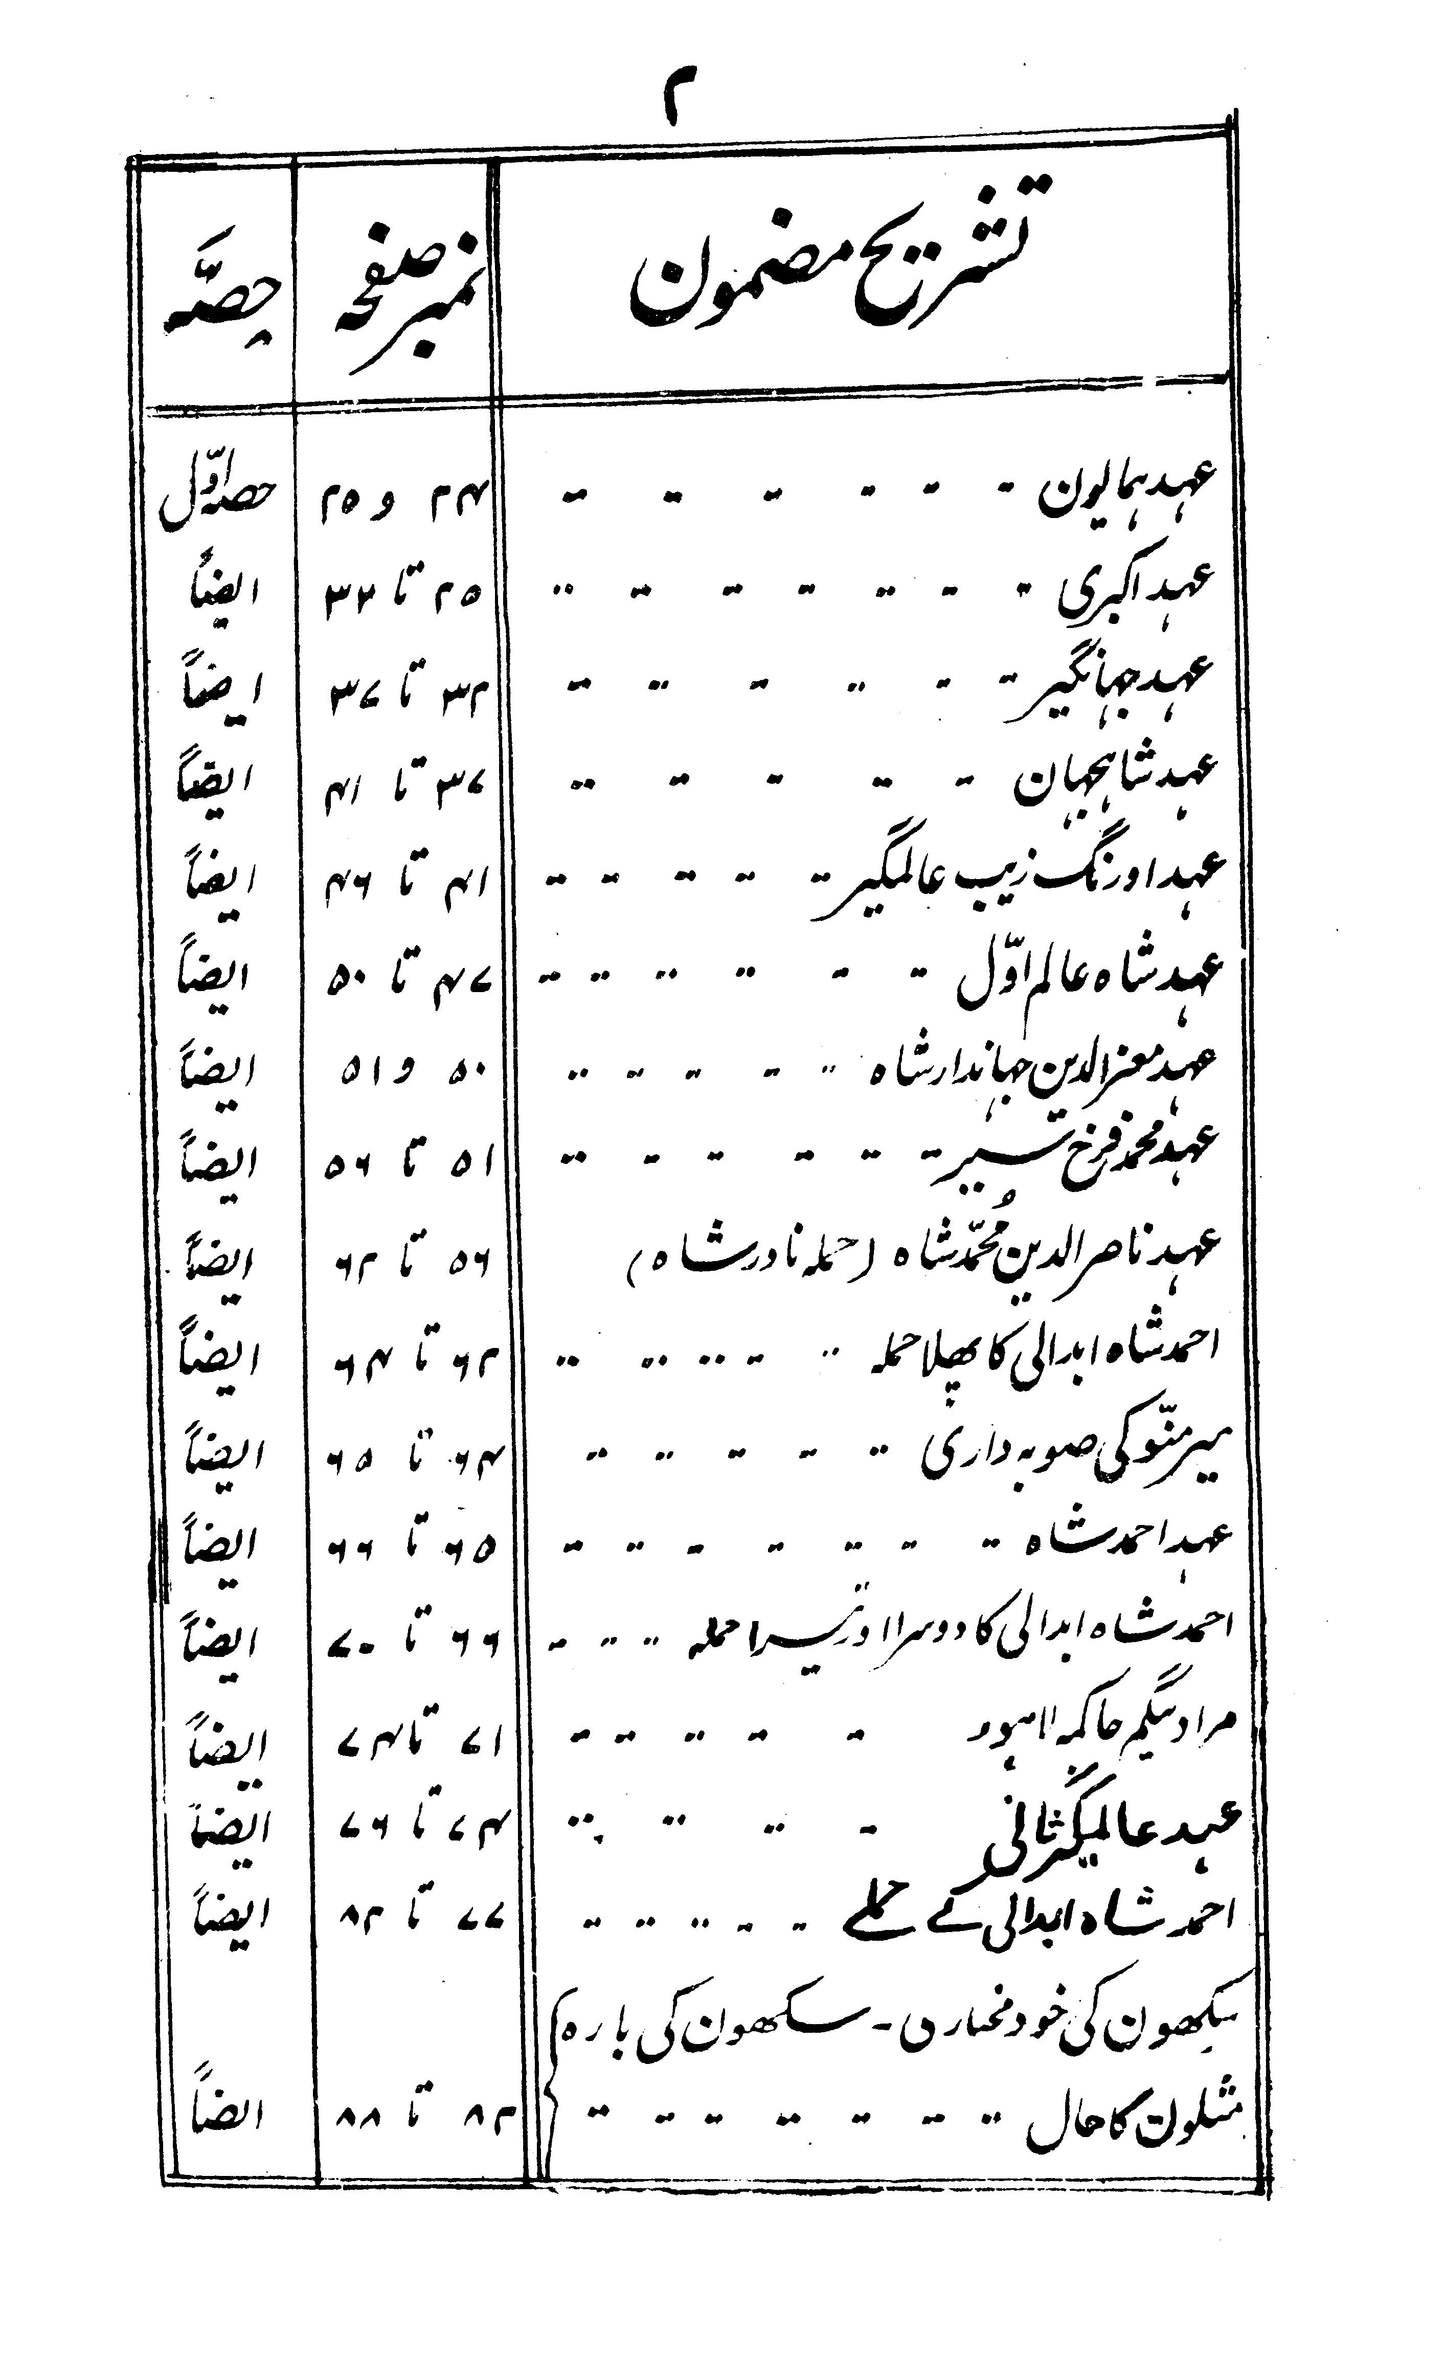 ۲
تشریح مضمون نمبر صفحہ حصّہ
عہد ہمایون ۲۴ و ۲۵ حصہ اوّل
عہد اکبری ۲۵ تا ۳۲ ایضاً
عہد جہانگیر ۳۲ تا ۳۷ ایضاً
عہد شاہجہان ۳۷ تا ۴۱ ایضاً
عہد اورنگ زیب عالمگیر ۴۱ تا ۴۶ ایضاً
عہد شاہ عالم اوّل ۴۷ تا ۵۰ ایضاً
عہد معزالدین جہاندار شاہ ۵۰ و ۵۱ ایضاً
عہد محمد فرخ سیر ۵۱ تا ۵۶ ایضاً
عہد ناصر الدین مُحمّد شاہ (حملہ نادر شاہ) ۵۶ تا ۶۲ ایضاً
احمد شاہ ابدالی کا پھلا حملہ ۶۲ تا ۶۴ ایضاً
میر منّو کی صوبہ داری ۶۴ تا ۶۵ ایضاً
عہد احمد شاہ ۶۵ تا ۶۶ ایضاً
احمد شاہ ابدالی کا دوسرا اور تیسرا حملہ ۶۶ تا ۷۰ ایضاً
مراد بیگم حاکمہ لاہور ۷۱ تا ۷۴ ایضاً
عہد عالمگیر ثانی ۷۴ تا ۷۶ ایضاً
احمد شاہ ابدالی کے حملے ۷۷ تا ۸۲ ایضاً
سکھون کی خود مختاری - سکھون کی بارہ
مثلون کا حال ۸۲ تا ۸۸ ایضاً